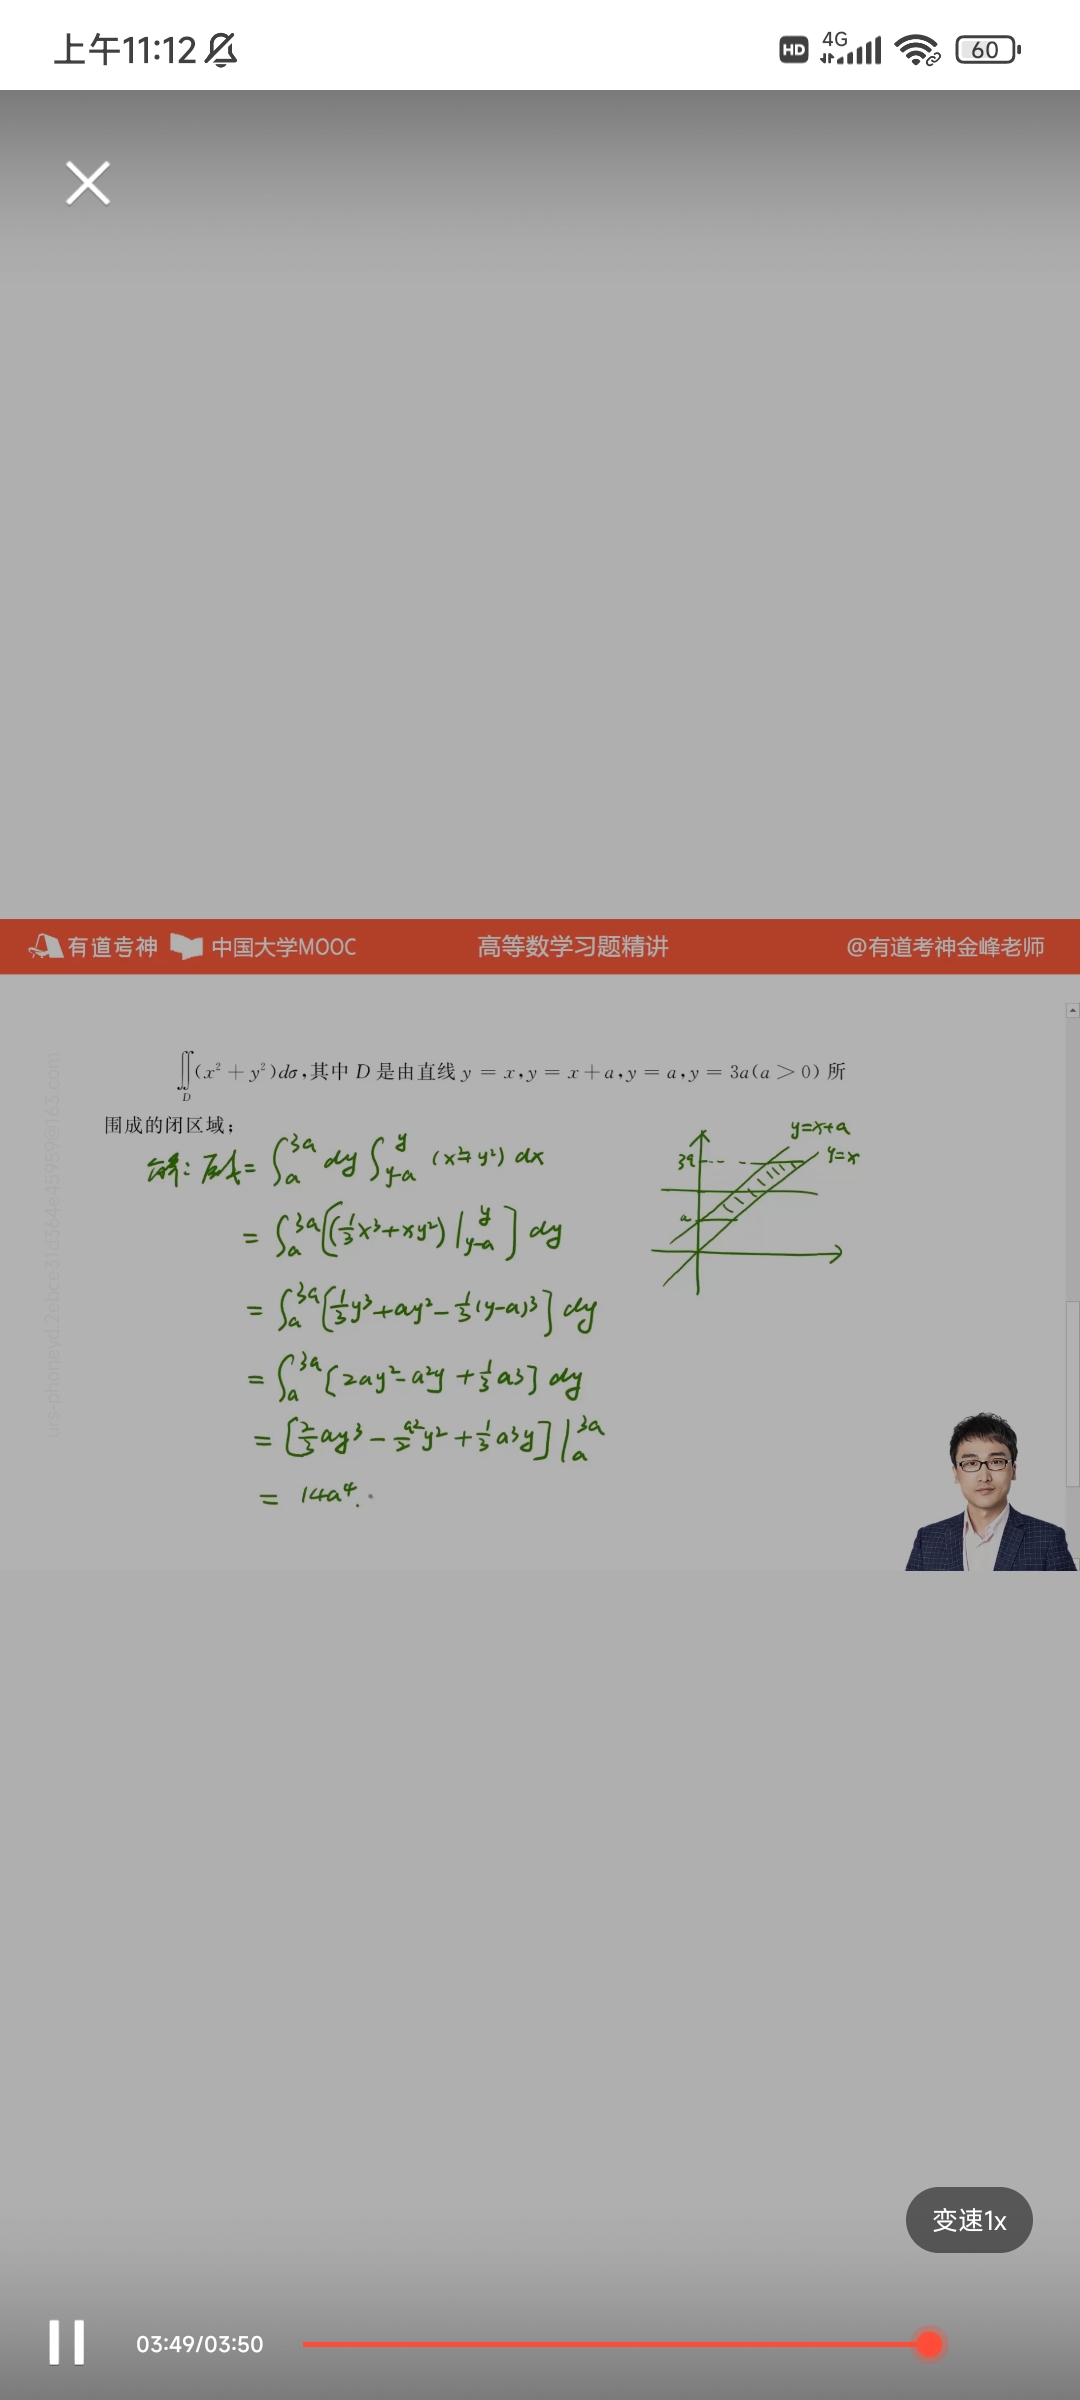 上午11:12
HD 4G 60
有道考神 中国大学MOOC 高等数学习题精讲 @有道考神金峰老师
∬_D (x² + y²)dσ,其中 D 是由直线 y = x,y = x + a,y = a,y = 3a(a > 0) 所
围成的闭区域;
y=x+a
y=x
3a
a
解: 原式= ∫_a^{3a} dy ∫_{y-a}^{y} (x²+y²) dx
= ∫_a^{3a} [(1/3 x³+xy²) |_{y-a}^{y}] dy
= ∫_a^{3a} [1/3 y³+ay²-1/3 (y-a)³] dy
= ∫_a^{3a} [2ay²-a²y+1/3 a³] dy
= [2/3 ay³-a²/2 y²+1/3 a³y] |_a^{3a}
= 14a⁴.
变速1x
03:49/03:50